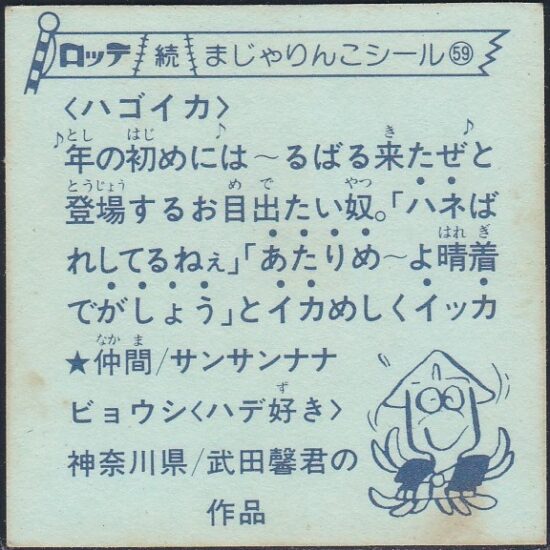 ロッテ 続 まじゃりんこシール59
〈ハゴイカ〉
♪年の初めには〜るばる来たぜ♪と
登場するお目出たい奴。「ハネば
れしてるねぇ」「あたりめ〜よ晴着
でがしょう」とイカめしくイッカ
★仲間/サンサンナナ
ビョウシ〈ハデ好き〉
神奈川県/武田馨君の
作品